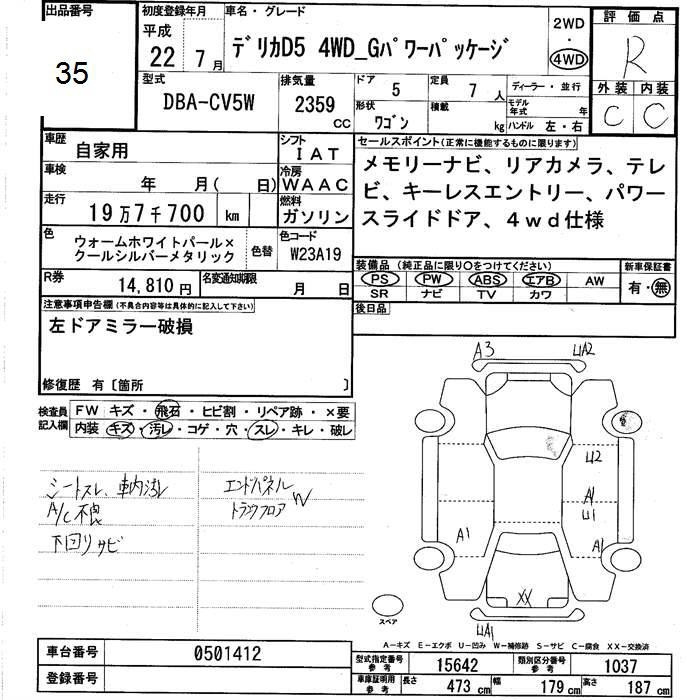 出品番号
35
初度登録年月
平成
22年 7月
車名・グレード
デリカD5 4WD_Gパワーパッケージ
2WD
・
4WD
評価点
R
外装 内装
C C
型式
DBA-CV5W
排気量
2359
CC
ドア 5
定員 7人
形状 ワゴン
積載 kg
ディーラー・並行
モデル年式 年
ハンドル 左・右
車歴
自家用
シフト
IAT
車検
年 月( 日)
冷房
WAAC
走行
19万7千700 km
燃料
ガソリン
色
ウォームホワイトパール×
クールシルバーメタリック
色替
色コード
W23A19
R券
14,810円
名変通知期限
月 日
セールスポイント(正常に機能するものに限ります)
メモリーナビ、リアカメラ、テレ
ビ、キーレスエントリー、パワー
スライドドア、4wd仕様
装備品(純正品に限り○をつけてください)
PS PW ABS エアB AW
SR ナビ TV カワ
新車保証書
有・無
後日品
注意事項申告欄(不具合内容等は具体的に記入して下さい)
左ドアミラー破損
修復歴 有〔箇所 〕
検査員
記入欄
FW キズ・飛石・ヒビ割・リペア跡・×要
内装 キズ・汚レ・コゲ・穴・スレ・キレ・破レ
シートスレ、車内汚レ
A/C不良
下回りサビ
エンドパネル
トランクフロア W
A3
U2
A1
U1
A1
A1
XX
スペア
A-キズ E-エクボ U-凹み W-補修跡 S-サビ C-腐食 XX-交換済
車台番号
0501412
登録番号
型式指定番号
参考
15642
類別区分番号
参考
1037
車庫証明用
参考
長さ 473cm
幅 179cm
高さ 187cm